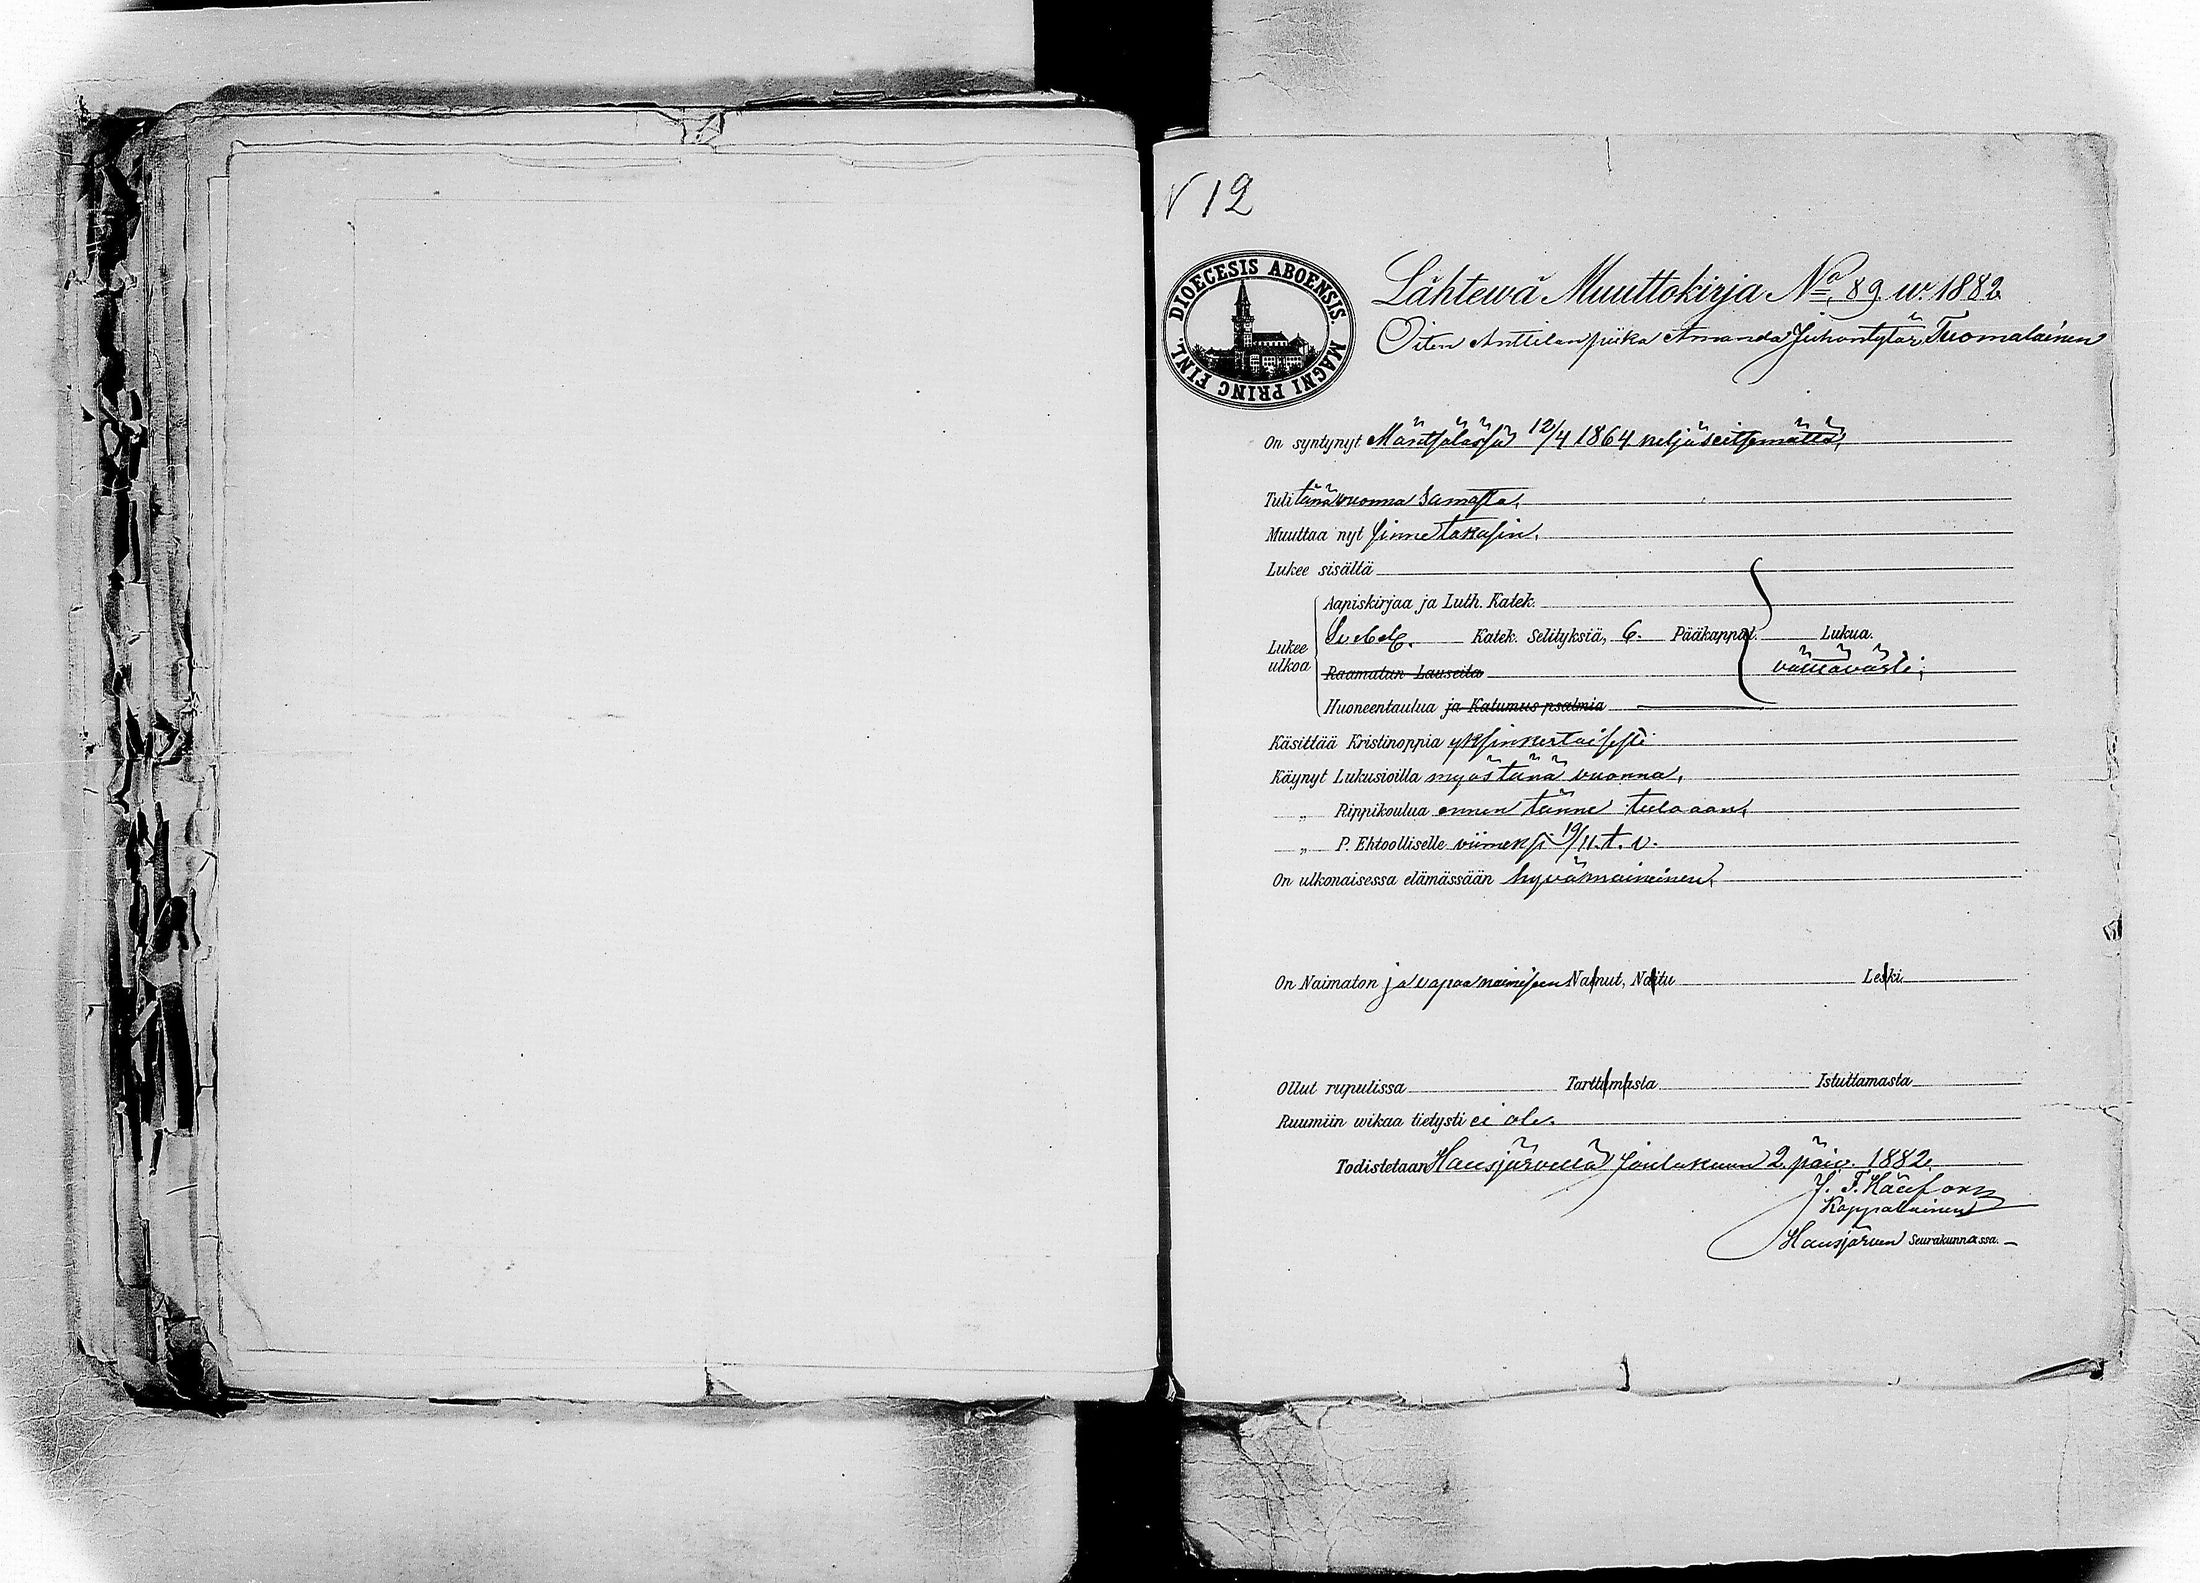 N 12
DIOECESIS ABOENSIS. MAGNI PRINC FINL.
Lähtewä Muuttokirja No 89 w. 1882
Oiten Anttilan piika Amanda Juhontytär Tuomalainen
On syntynyt Mäntsälässä 12/4 1864 neljäseitsemättä,
Tuli tänä vuonna samasta,
Muuttaa nyt sinne takasin,
Lukee sisältä
Aapiskirjaa ja Luth. Katek.
Lukee ulkoa Svebel. Katek. Selityksiä, 6. Pääkappal. Lukua.
Raamatun Lauseita välttävästi;
Huoneentaulua ja Katumus psalmia
Käsittää Kristinoppia yksinkertaisesti
Käynyt Lukusioilla myös tänä vuonna,
„ Rippikoulua ennen tänne tuloaan,
„ P. Ehtoolliselle viimeksi 19/11. t. v.
On ulkonaisessa elämässään hyvämaineinen,
On Naimaton ja vapaa naimiseen Nainut, Naitu Leski
Ollut rupulissa Tarttumasta Istuttamasta
Ruumiin wikaa tietysti ei ole.
Todistetaan Hausjärvellä Joulukuun 2 päiv. 1882.
J. F.
Kappalainen
Hausjärven Seurakunnassa.